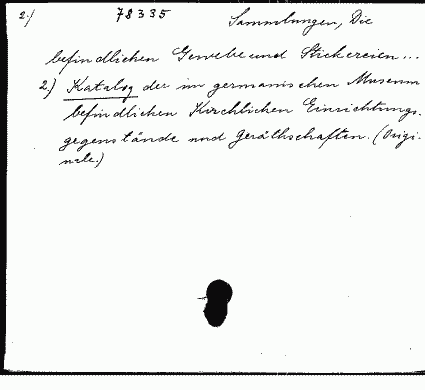 2./ 78335 Sammlungen, Die
befindlichen Gewebe und Stickereien...
2.) Katalog der im germanischen Museum
befindlichen Kirchlichen Einrichtungs-
gegenstände und Geräthschaften. (Origi-
nale.)